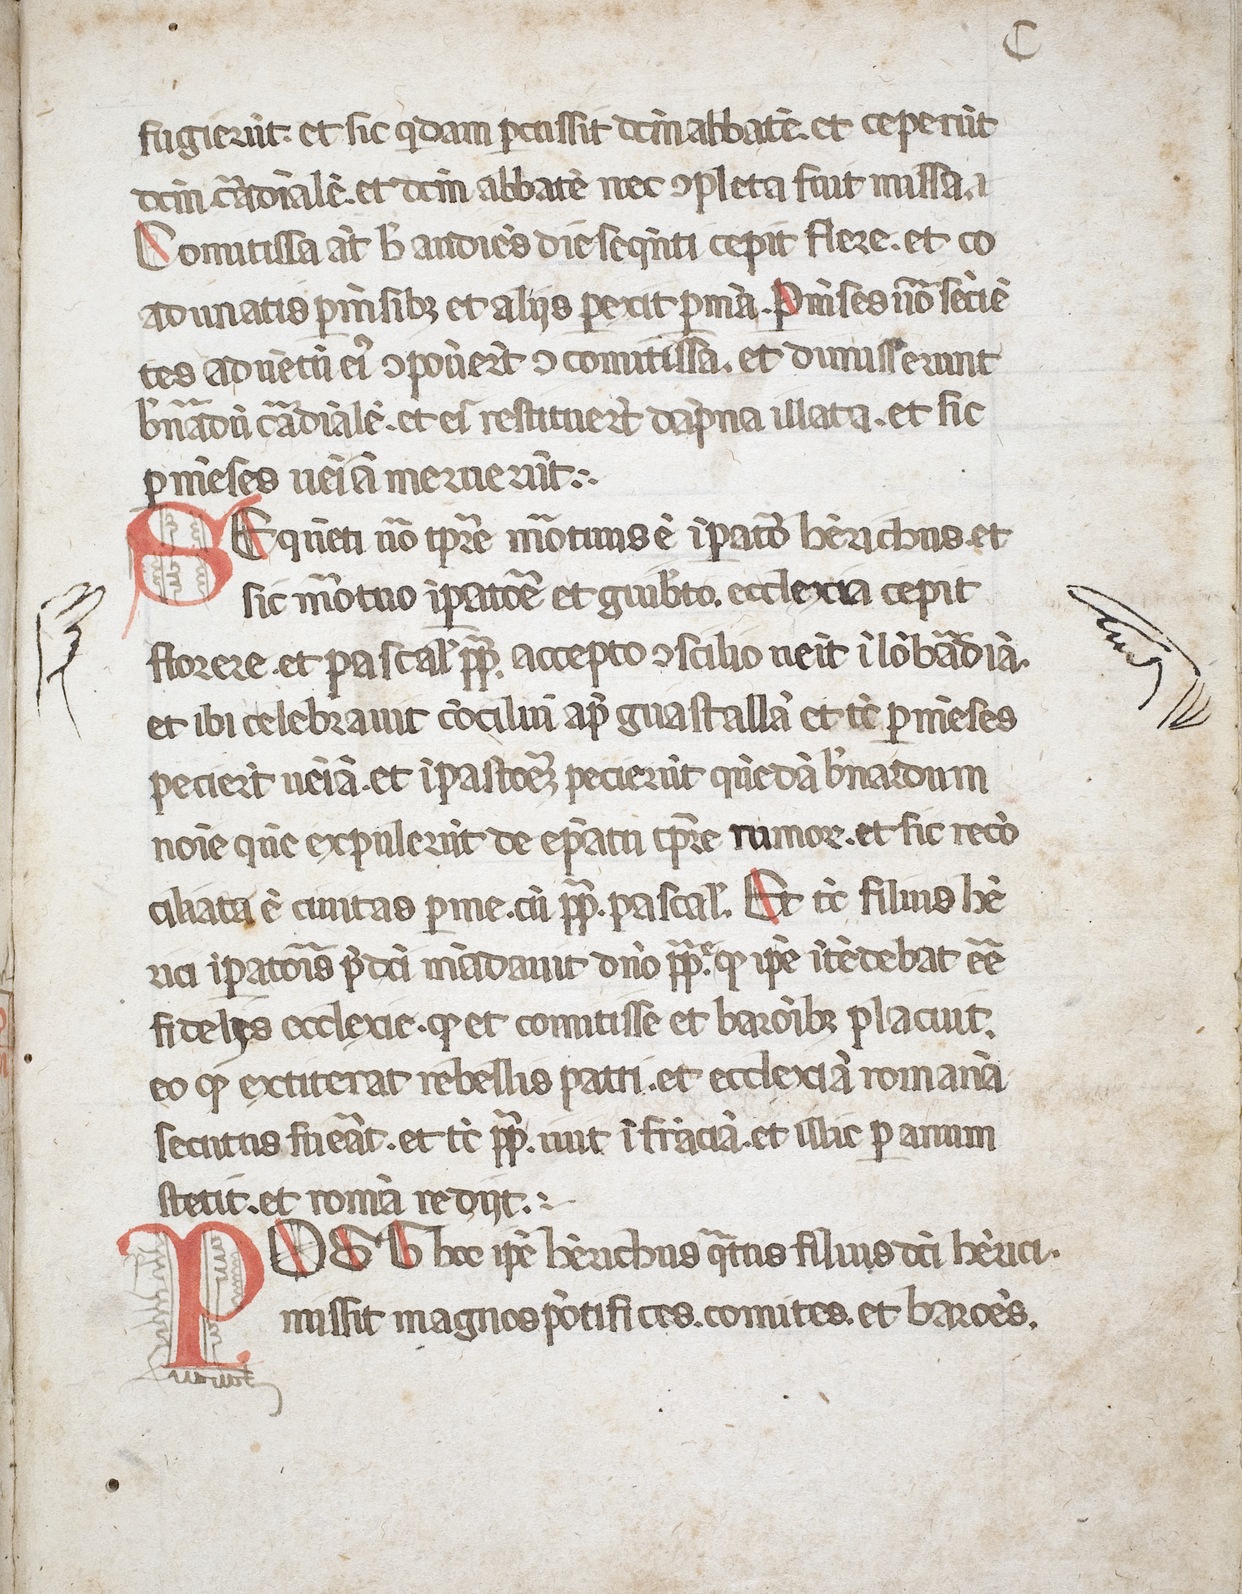 C
fugierūt. et sic q̄dam ꝑcussit dc̄m abbatē. et ceperūt
dc̄m cādīalē. et dc̄m abbatē nec ꝯpleta fuit missa.
Comitissa aūt h̄ audiēs die seqn̄ti cepit flere. et co
adunatis ꝑm̄sibꝫ et alijs pexit ꝑmā. Ꝑm̄ses u̅o̅ sēciē
tes aduētū eiꝰ ꝯpōuert̄ ꝯ comitissa. et dimisserunt
b̄nādū cādīalē. et ei restituert̄ dāpna illata. et sic
ꝑmēses uēiā meruerūt:.
SEquēti uō tp̄re mōtuus ē īpatō hērichus. et
sic mōtuo īpatōe et guib̄to. ecclexia cepit
florere. et pascal̄ pp̄. accepto ꝯscilio ueīt ī lōbādīā.
et ibi celebrauit cōciliū ap̄ guastallā et tc̄ ꝑmēses
peciert̄ uēiā. et ī pastoēꝫ pecierūt quēdā b̄nardum
noīe quē expulerūt de ep̄atu tp̄re rumor̄. et sic recō
ciliata ē ciuitas ꝑme. cū pp̄. pascal̄. Et tc̄ filius hē
rici īpatōis p̄dc̄i mādauit dn̄o pp̄e. ꝙ ip̄e ītēdebat ēē
fidelis ecclexie. ꝙ et comitisse et barōibꝫ placuit.
eo ꝙ extiterat rebellis patri. et ecclexiā romanā
secutus fuēat. et tc̄ pp̄. iuit ī frāciā. et illic ꝑ anum
stetit. et romā redijt. :-
POST hoc ip̄e hērichus q̄rtus filius dc̄i hērici.
missit magnos pōtifices. comites. et baroēs.